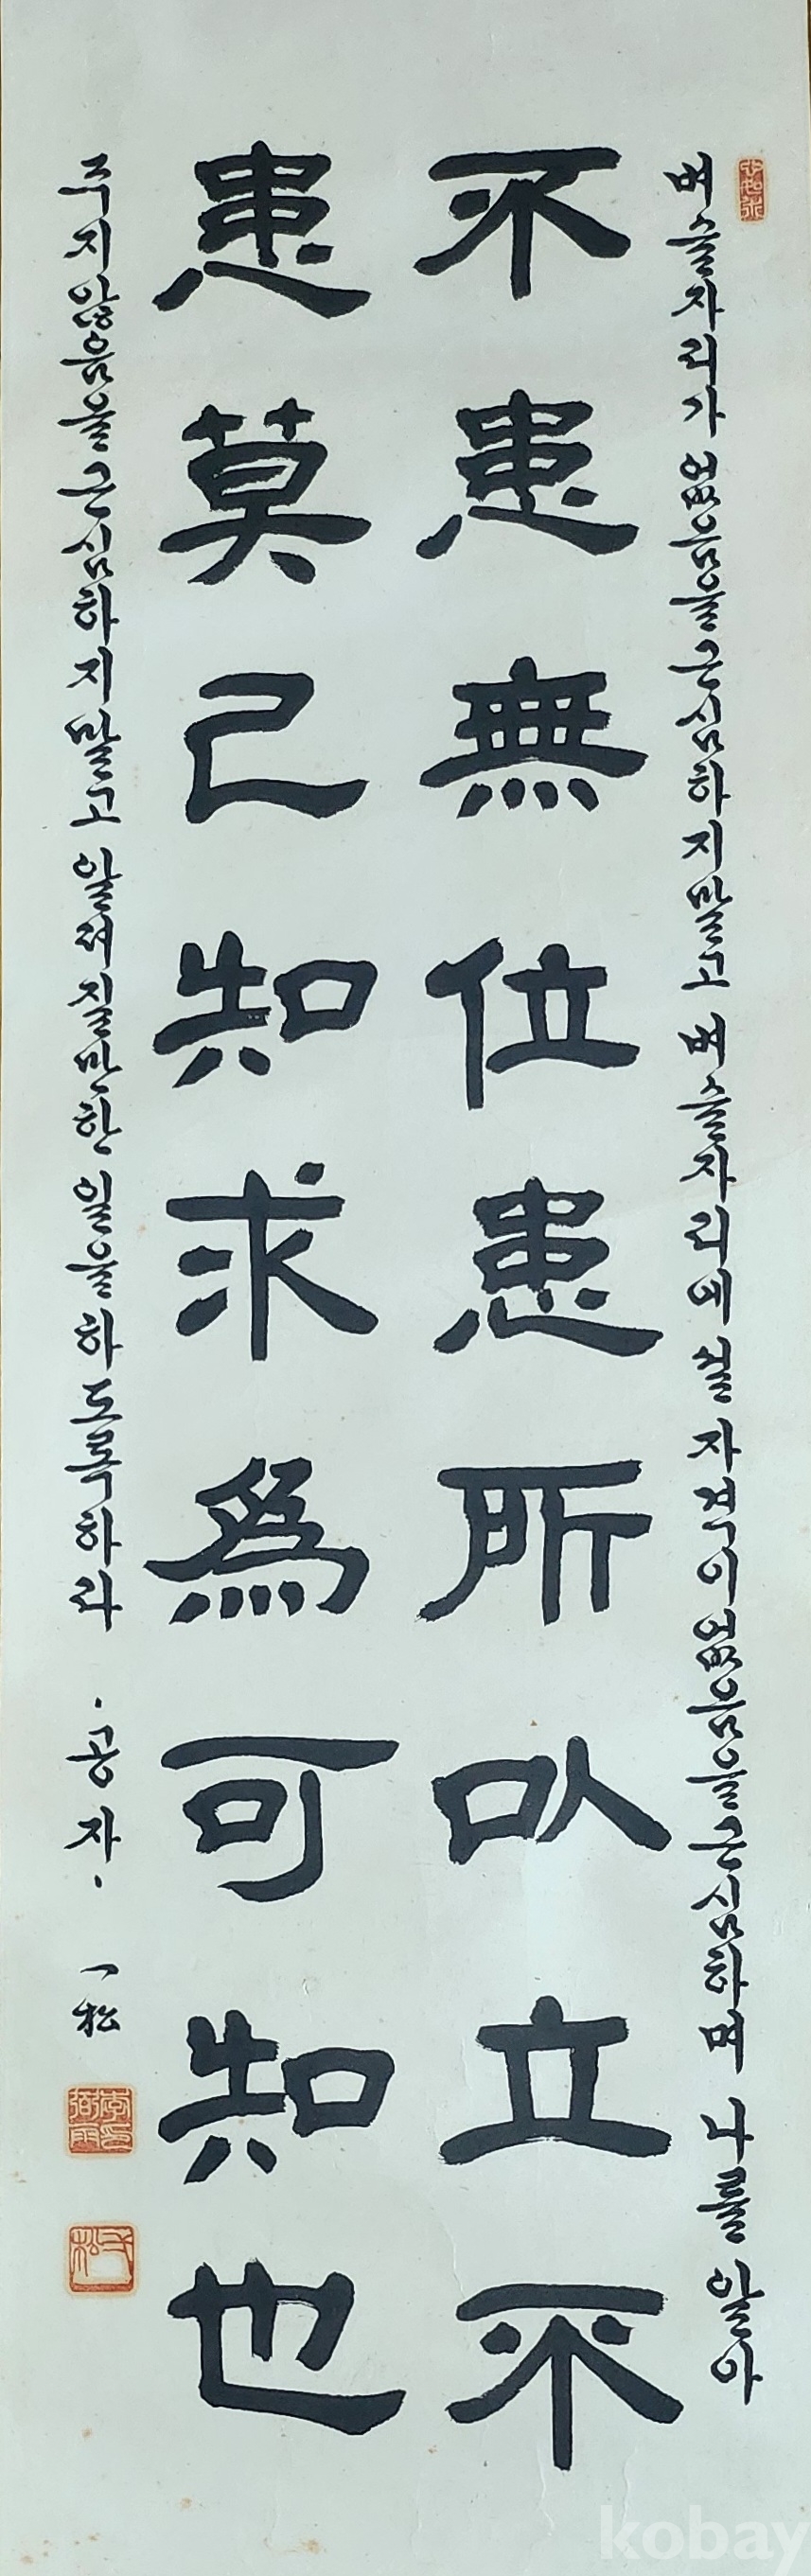 벼슬자리가 없음을 근심하지 말고 벼슬자리에 설 자격이 없음을 근심하며 나를 알아
不患無位患所以立不
患莫己知求爲可知也
주지 않음을 근심하지 말고 알려질만한 일을 하도록 하라 · 공자 · 一松
kobay